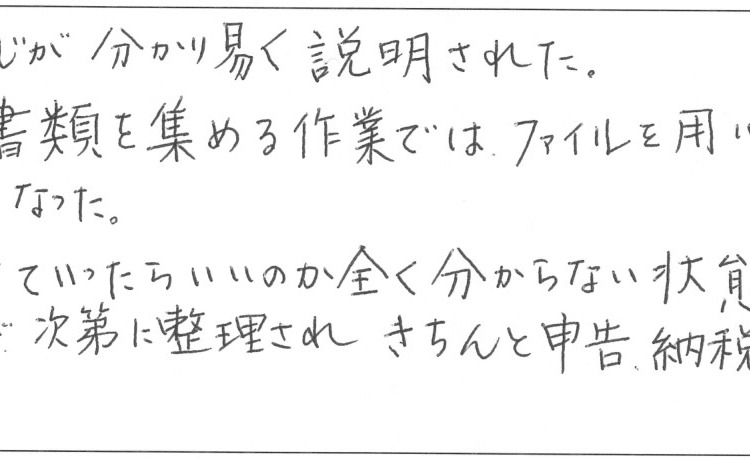 じが 分かり易く説明された。
書類を集める作業では、ファイルを用い
なった。
ていったらいいのか全く分からない状態
次第に整理され きちんと申告、納税